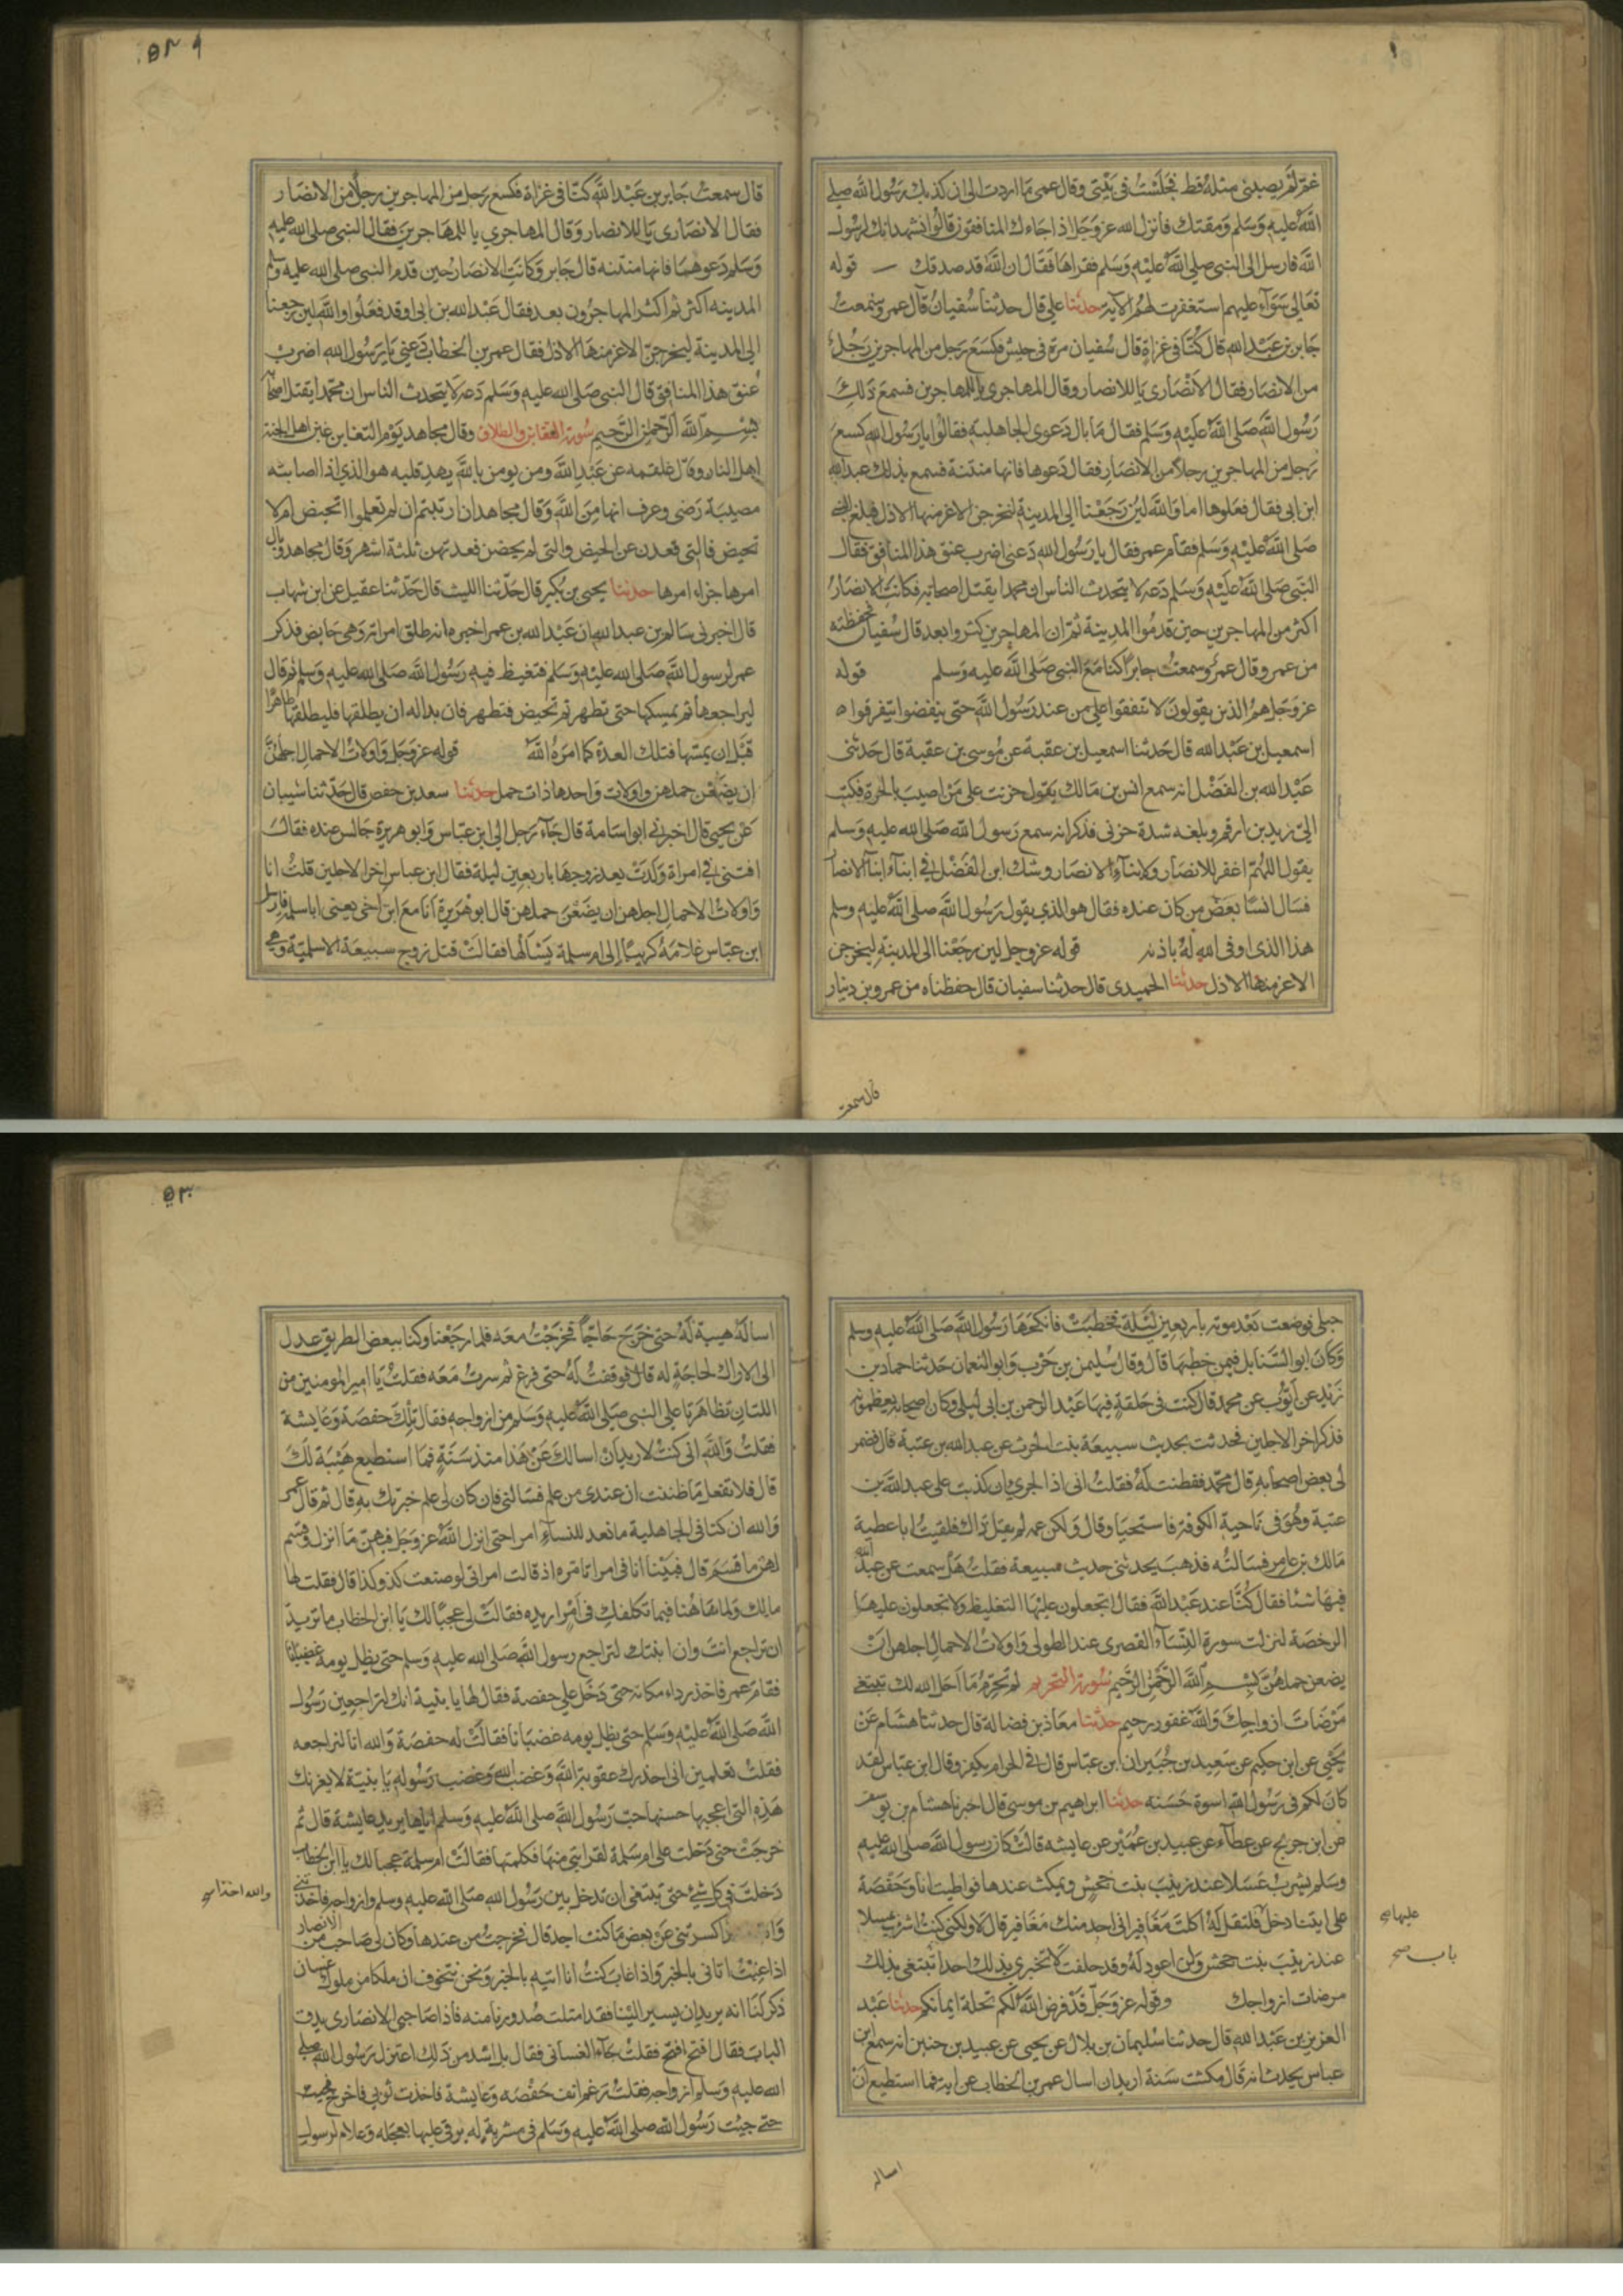 غم لم يصبني مثله قط فجلست في بيتي وقال عمي ما اردت الى ان كذبك رسول الله صلى
الله عليه وسلم ومقتك فانزل الله عز وجل اذا جاءك المنافقون قالوا نشهد انك لرسول
الله فارسل الى النبي صلى الله عليه وسلم فقراها فقال ان الله قد صدقك قوله
تعالى سواء عليهم استغفرت لهم الاية حدثنا علي قال حدثنا سفيان قال عمرو سمعت
جابر بن عبد الله قال كنا في غزاة قال سفيان مرة في جيش فكسع رجل من المهاجرين رجلا
من الانصار فقال الانصاري يا للانصار وقال المهاجري يا للمهاجرين فسمع ذلك
رسول الله صلى الله عليه وسلم فقال ما بال دعوى الجاهلية فقالوا يا رسول الله كسع
رجل من المهاجرين رجلا من الانصار فقال دعوها فانها منتنة فسمع بذلك عبد الله
ابن ابي فقال فعلوها اما والله لئن رجعنا الى المدينة ليخرجن الاعز منها الاذل فبلغ النبي
صلى الله عليه وسلم فقام عمر فقال يا رسول الله دعني اضرب عنق هذا المنافق فقال
النبي صلى الله عليه وسلم دعه لا يتحدث الناس ان محمدا يقتل اصحابه فكانت الانصار
اكثر من المهاجرين حين قدموا المدينة ثم ان المهاجرين كثروا بعد قال سفيان فحفظته
من عمرو قال عمرو سمعت جابرا كنا مع النبي صلى الله عليه وسلم قوله
عز وجل هم الذين يقولون لا تنفقوا على من عند رسول الله حتى ينفضوا يتفرقوا ه
اسمعيل بن عبد الله قال حدثنا اسمعيل بن عقبة عن موسى بن عقبة قال حدثني
عبد الله بن الفضل انه سمع انس بن مالك يقول حزنت على من اصيب بالحرة فكتب
الي زيد بن ارقم وبلغه شدة حزني فذكر انه سمع رسول الله صلى الله عليه وسلم
يقول اللهم اغفر للانصار ولابناء الانصار وشك ابن الفضل في ابناء ابناء الانصار
فسال انسا بعض من كان عنده فقال هو الذي يقول رسول الله صلى الله عليه وسلم
هذا الذي اوفى الله له باذنه قوله عز وجل لئن رجعنا الى المدينة ليخرجن
الاعز منها الاذل حدثنا الحميدي قال حدثنا سفيان قال حفظناه من عمرو بن دينار
قال سمعت
قال سمعت جابر بن عبد الله كنا في غزاة فكسع رجل من المهاجرين رجلا من الانصار
فقال الانصاري يا للانصار وقال المهاجري يا للمهاجرين فقال النبي صلى الله عليه
وسلم دعوها فانها منتنه قال جابر وكانت الانصار حين قدم النبي صلى الله عليه وسلم
المدينه اكثر ثم اكثر المهاجرون بعد فقال عبد الله بن ابي اوقد فعلوا والله لئن رجعنا
الى المدينة ليخرجن الاعز منها الاذل فقال عمر بن الخطاب دعني يا رسول الله اضرب
عنق هذا المنافق قال النبي صلى الله عليه وسلم دعه لا يتحدث الناس ان محمدا يقتل اصحابه
بسم الله الرحمن الرحيم سورة التغابن والطلاق وقال مجاهد يوم التغابن غبن اهل الجنة
اهل النار وقال علقمه عن عبد الله ومن يومن بالله يهد قلبه هو الذي اذا اصابته
مصيبة رضي وعرف انها من الله وقال مجاهد ان ارتبتم ان لم تعلموا اتحيض ام لا
تحيض فالتي قعدن عن الحيض والتي لم يحضن فعدتهن ثلثة اشهر وقال مجاهد وبال
امرها جزاء امرها حدثنا يحيى بن بكير قال حدثنا الليث قال حدثنا عقيل عن ابن شهاب
قال اخبرني سالم بن عبد الله ان عبد الله بن عمر اخبره انه طلق امراته وهي حايض فذكر
عمر لرسول الله صلى الله عليه وسلم فتغيظ فيه رسول الله صلى الله عليه وسلم ثم قال
ليراجعها ثم يمسكها حتى تطهر ثم تحيض فتطهر فان بدا له ان يطلقها فليطلقها طاهرا
قبل ان يمسها فتلك العدة كما امره الله قوله عز وجل واولات الاحمال اجلهن
ان يضعن حملهن واولات واحدها ذات حمل حدثنا سعد بن حفص قال حدثنا شيبان
عن يحيى قال اخبرني ابو اسامة قال جاء رجل الى ابن عباس وابو هريرة جالس عنده فقال
افتني في امراة ولدت بعد زوجها باربعين ليلة فقال ابن عباس اخر الاجلين قلت انا
واولات الاحمال اجلهن ان يضعن حملهن قال ابو هريرة انا مع ابن اخي يعني ابا سلمة فارسل
ابن عباس غلامه كريبا الى ام سلمة يسالها فقالت قتل زوج سبيعة الاسلمية وهي
حبلى فوضعت بعد موته باربعين ليلة فخطبت فانكحها رسول الله صلى الله عليه وسلم
وكان ابو السنابل فيمن خطبها قال وقال سليمن بن حرب وابو النعمان حدثنا حماد بن
زيد عن ايوب عن محمد قال كنت في حلقة فيها عبد الرحمن بن ابي ليلى وكان اصحابه يعظمونه
فذكر اخر الاجلين فحدثت بحديث سبيعة بنت الحرث عن عبد الله بن عتبة قال فضمر
لي بعض اصحابه قال محمد ففطنت له فقلت اني اذا لجريء ان كذبت على عبد الله بن
عتبة وهو في ناحية الكوفة فاستحيا وقال ولكن عمه لم يقل ذاك فلقيت ابا عطية
مالك بن عامر فسالته فذهب يحدثني حديث سبيعة فقلت هل سمعت عن عبد الله
فيها شئا فقال كنا عند عبد الله فقال اتجعلون عليها التغليظ ولا تجعلون عليها
الرخصة لنزلت سورة النساء القصرى عند الطولى واولات الاحمال اجلهن ان
يضعن حملهن بسم الله الرحمن الرحيم سورة التحريم لم تحرم ما احل الله لك تبتغي
مرضات ازواجك والله غفور رحيم حدثنا معاذ بن فضالة قال حدثنا هشام عن
يحيى عن ابن حكيم عن سعيد بن جبير ان ابن عباس قال في الحرام يكفر وقال ابن عباس لقد
كان لكم في رسول الله اسوة حسنه حدثنا ابراهيم بن موسى قال اخبرنا هشام بن يوسف
عن ابن جريج عن عطاء عن عبيد بن عمير عن عايشه قالت كان رسول الله صلى الله عليه
وسلم يشرب عسلا عند زينب بنت جحش ويمكث عندها فواطيت انا وحفصة
على ايتنا دخل فلتقل له اكلت مغافير اني اجد منك مغافير قال لا ولكني كنت اشرب عسلا
عند زينب بنت جحش ولن اعود له وقد حلفت لا تخبري بذلك احدا تبتغي بذلك
مرضات ازواجك وقوله عز وجل قد فرض الله لكم تحلة ايمانكم حدثنا عبد
العزيز بن عبد الله قال حدثنا سليمان بن بلال عن يحيى عن عبيد بن حنين انه سمع ابن
عباس يحدث انه قال مكثت سنة اريد ان اسال عمر بن الخطاب عن اية فما استطيع ان
عليها
باب صح
اساله
اساله هيبة له حتى خرج حاجا فخرجت معه فلما رجعنا وكنا ببعض الطريق عدل
الى الاراك لحاجة له قال فوقفت له حتى فرغ ثم سرت معه فقلت يا امير المومنين من
اللتان تظاهرتا على النبي صلى الله عليه وسلم من ازواجه فقال تلك حفصة وعايشة
فقلت والله اني كنت لاريد ان اسالك عن هذا منذ سنة فما استطيع هيبة لك
قال فلا تفعل ما ظننت ان عندي من علم فسالني فان كان لي علم خبرتك به قال ثم قال عمر
والله ان كنا في الجاهلية ما نعد للنساء امرا حتى انزل الله عز وجل فيهن ما انزل وقسم
لهن ما قسم قال فبينا انا في امر اتامره اذ قالت امراتي لو صنعت كذا وكذا قال فقلت لها
مالك ولما هاهنا فيما تكلفك في امر اريده فقالت لي عجبا لك يا ابن الخطاب ما تريد
ان تراجع انت وان ابنتك لتراجع رسول الله صلى الله عليه وسلم حتى يظل يومه غضبانا
فقام عمر فاخذ رداءه مكانه حتى دخل على حفصة فقال لها يا بنية انك لتراجعين رسول
الله صلى الله عليه وسلم حتى يظل يومه غضبانا فقالت له حفصة والله انا لنراجعه
فقلت تعلمين اني احذرك عقوبة الله وغضب الله وغضب رسوله يا بنية لا يغرنك
هذه التي اعجبها حسنها حب رسول الله صلى الله عليه وسلم اياها يريد عايشة قال ثم
خرجت حتى دخلت على ام سلمة لقرابتي منها فكلمتها فقالت ام سلمة عجبا لك يا ابن الخطاب
دخلت في كل شيء حتى تبتغي ان تدخل بين رسول الله صلى الله عليه وسلم وازواجه فاخذتني
كسرتني عن بعض ما كنت اجد قال فخرجت من عندها وكان لي صاحب من الانصار
اذا غبت اتاني بالخبر واذا غاب كنت انا اتيه بالخبر ونحن نتخوف ان ملكا من ملوك غسان
ذكر لنا انه يريدان يسير الينا فقد امتلت صدورنا منه فاذا صاحبي الانصاري يدق
الباب فقال افتح افتح فقلت جاء الغساني فقال بل اشد من ذلك اعتزل رسول الله صلى
الله عليه وسلم ازواجه فقلت رغم انف حفصه وعايشة فاخذت ثوبي فاخرج فجيت
حتى جيت رسول الله صلى الله عليه وسلم في مشربة له يرقى عليها بعجله وغلام لرسول
والله اخذا